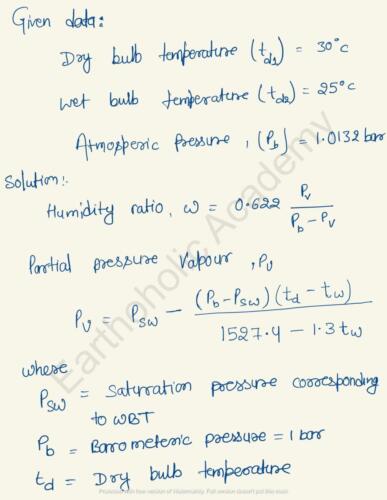 Given data:
Dry bulb temperature (t_d1) = 30°c
Wet bulb temperature (t_d2) = 25°c
Atmospheric pressure, (P_b) = 1.0132 bar
Solution:-
Humidity ratio, ω = 0.622 P_v / (P_b - P_v)
Partial pressure Vapour, P_v
P_v = P_sw - (P_b - P_sw)(t_d - t_w) / (1527.4 - 1.3 t_w)
where
P_sw = Saturation pressure corresponding
to WBT
P_b = Barometeric pressure = 1 bar
t_d = Dry bulb temperature
Earthoholic Academy